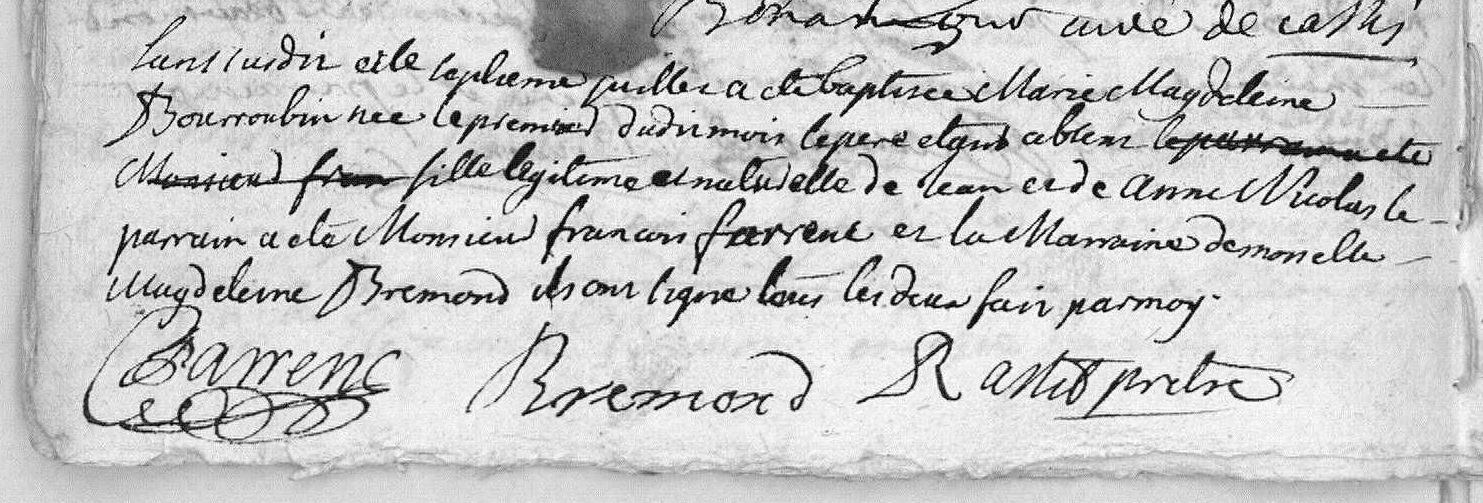 curé de cassis
lan susdit et le septieme juillet a eté baptisée Marie Magdeleine
Bourroubin née le premier dudit mois le pere etant absent le parrain a eté
Monsieur fran fille legitime et naturelle de Jean et de Anne Nicolas le
parrain a eté Monsieur francois farrenc et la Marraine demoiselle
Magdeleine Bremond ils ont signe tous les deux fait par moy
farrenc Bremond Rastit pretre